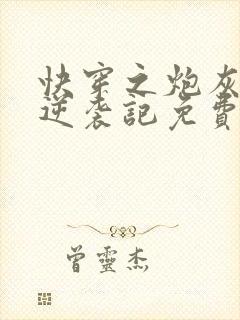 快穿之炮灰
逆袭記免費
曾靈杰